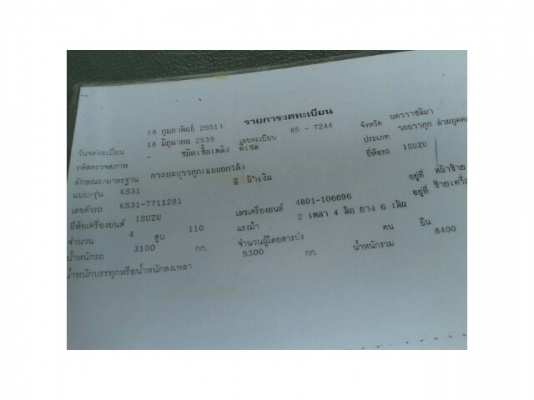 รายการจดทะเบียน
(8 กุมภาพันธ์ 2551)
วันจดทะเบียน 18 มิถุนายน 2539 เลขทะเบียน 85 - 7244 จังหวัด นครราชสีมา
รหัสตรวจสภาพ ชนิดเชื้อเพลิง ดีเซล ประเภท รถบรรทุก ส่วนบุคคล
ลักษณะ/มาตรฐาน กระบะบรรทุก ยี่ห้อรถ ISUZU
แบบ/รุ่น KS31 สี ฟ้าเงิน
เลขตัวรถ KS31-7711281 เลขเครื่องยนต์ 4BD1-106696 อยู่ที่
ยี่ห้อเครื่องยนต์ ISUZU อยู่ที่
จำนวน 4 สูบ 110 แรงม้า 2 เพลา 4 ล้อ ยาง 6 เส้น
น้ำหนักรถ 3100 กก. จำนวนผู้โดยสาร นั่ง คน ยืน
น้ำหนักบรรทุกหรือน้ำหนักลงเพลา 5300 กก. น้ำหนักรวม 8400